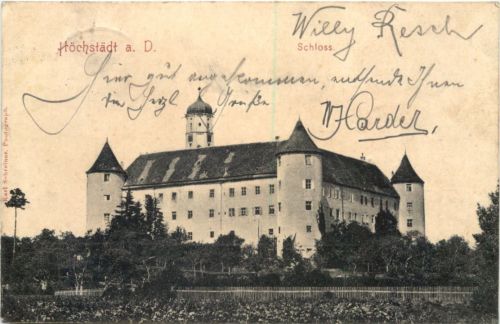 Höchstädt a. D.
Schloss.
Willy Resch
Hier gut angekommen, entsende Ihnen
die herzl. Grüße
Harder.
Karl Schreitner, Photograph.